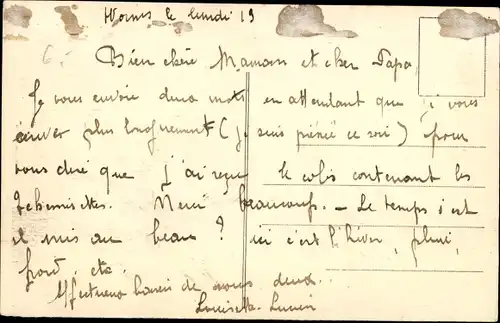 Worms le lundi 13
Bien chère Maman et cher Papa
Je vous envoie deux mots en attendant que j'ai vous
écrirer plus longuement (je suis pressé ce soir) pour
vous dire que j'ai reçu le colis contenant les
chemisettes. Merci beaucoup. - Le temps s'est
il mis au beau ? ici c'est l'hiver, pluie,
froid, etc.
Affectueux baisers de nous deux.
Louisette Lucien